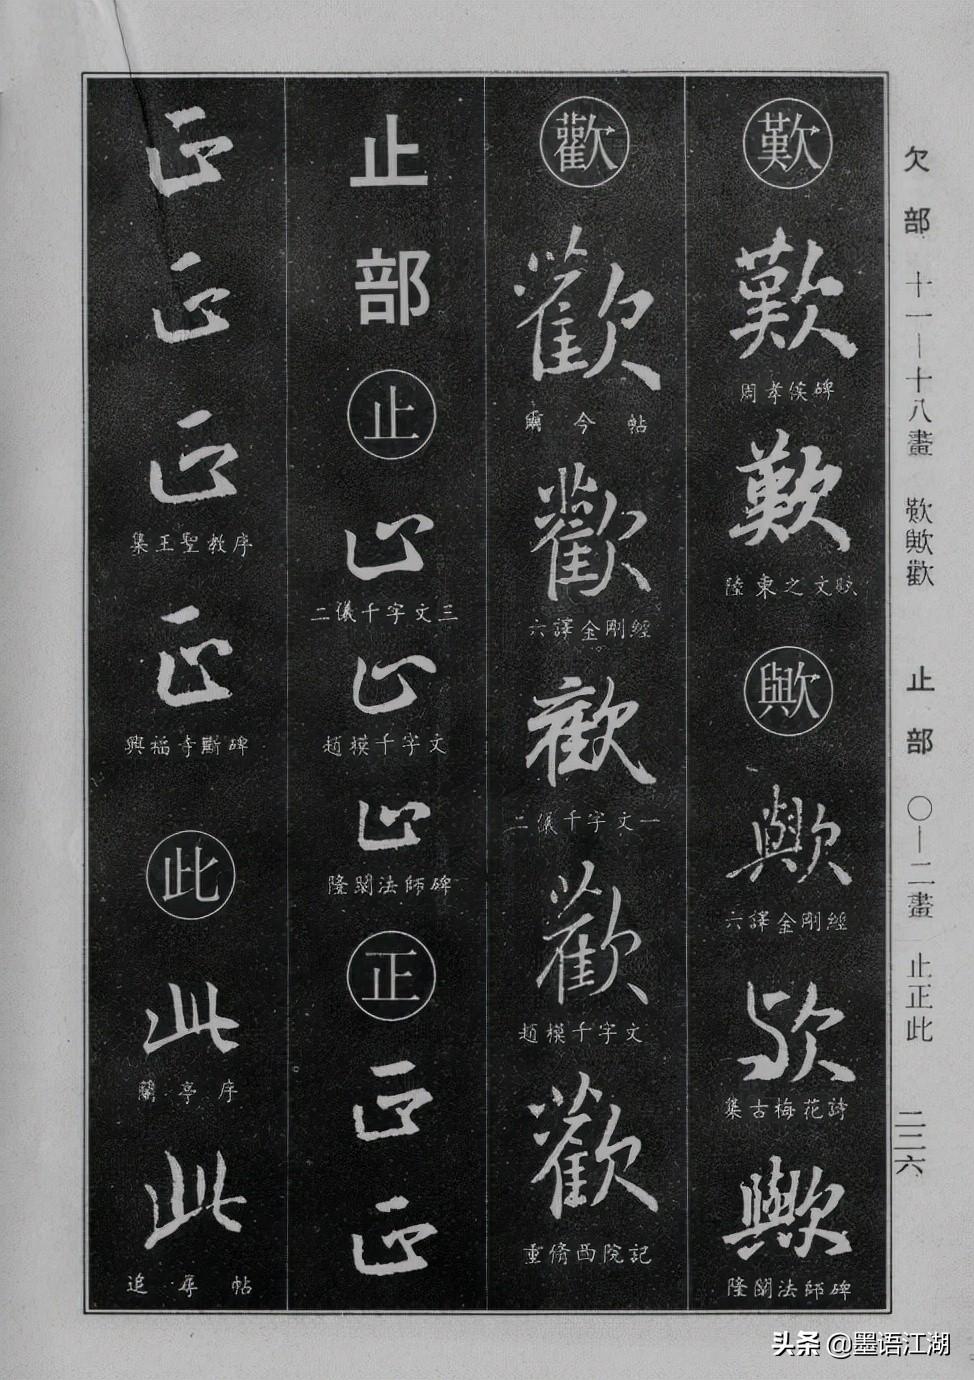 欠部 十一—十八畫 歎歟歡 止部 〇—二畫 止正此 二二六
歎
歎
周孝侯碑
歎
陸柬之文賦
歟
歟
六譯金剛經
歟
集古梅花詩
歟
隆闡法師碑
歡
歡
闊今帖
歡
六譯金剛經
歡
二儀千字文一
歡
趙模千字文
歡
重脩西院記
止部
止
止
二儀千字文三
止
趙模千字文
止
隆闡法師碑
正
正
正
正
正
正
集王聖教序
正
興福寺斷碑
此
此
蘭亭序
此
追尋帖
头条 @墨语江湖